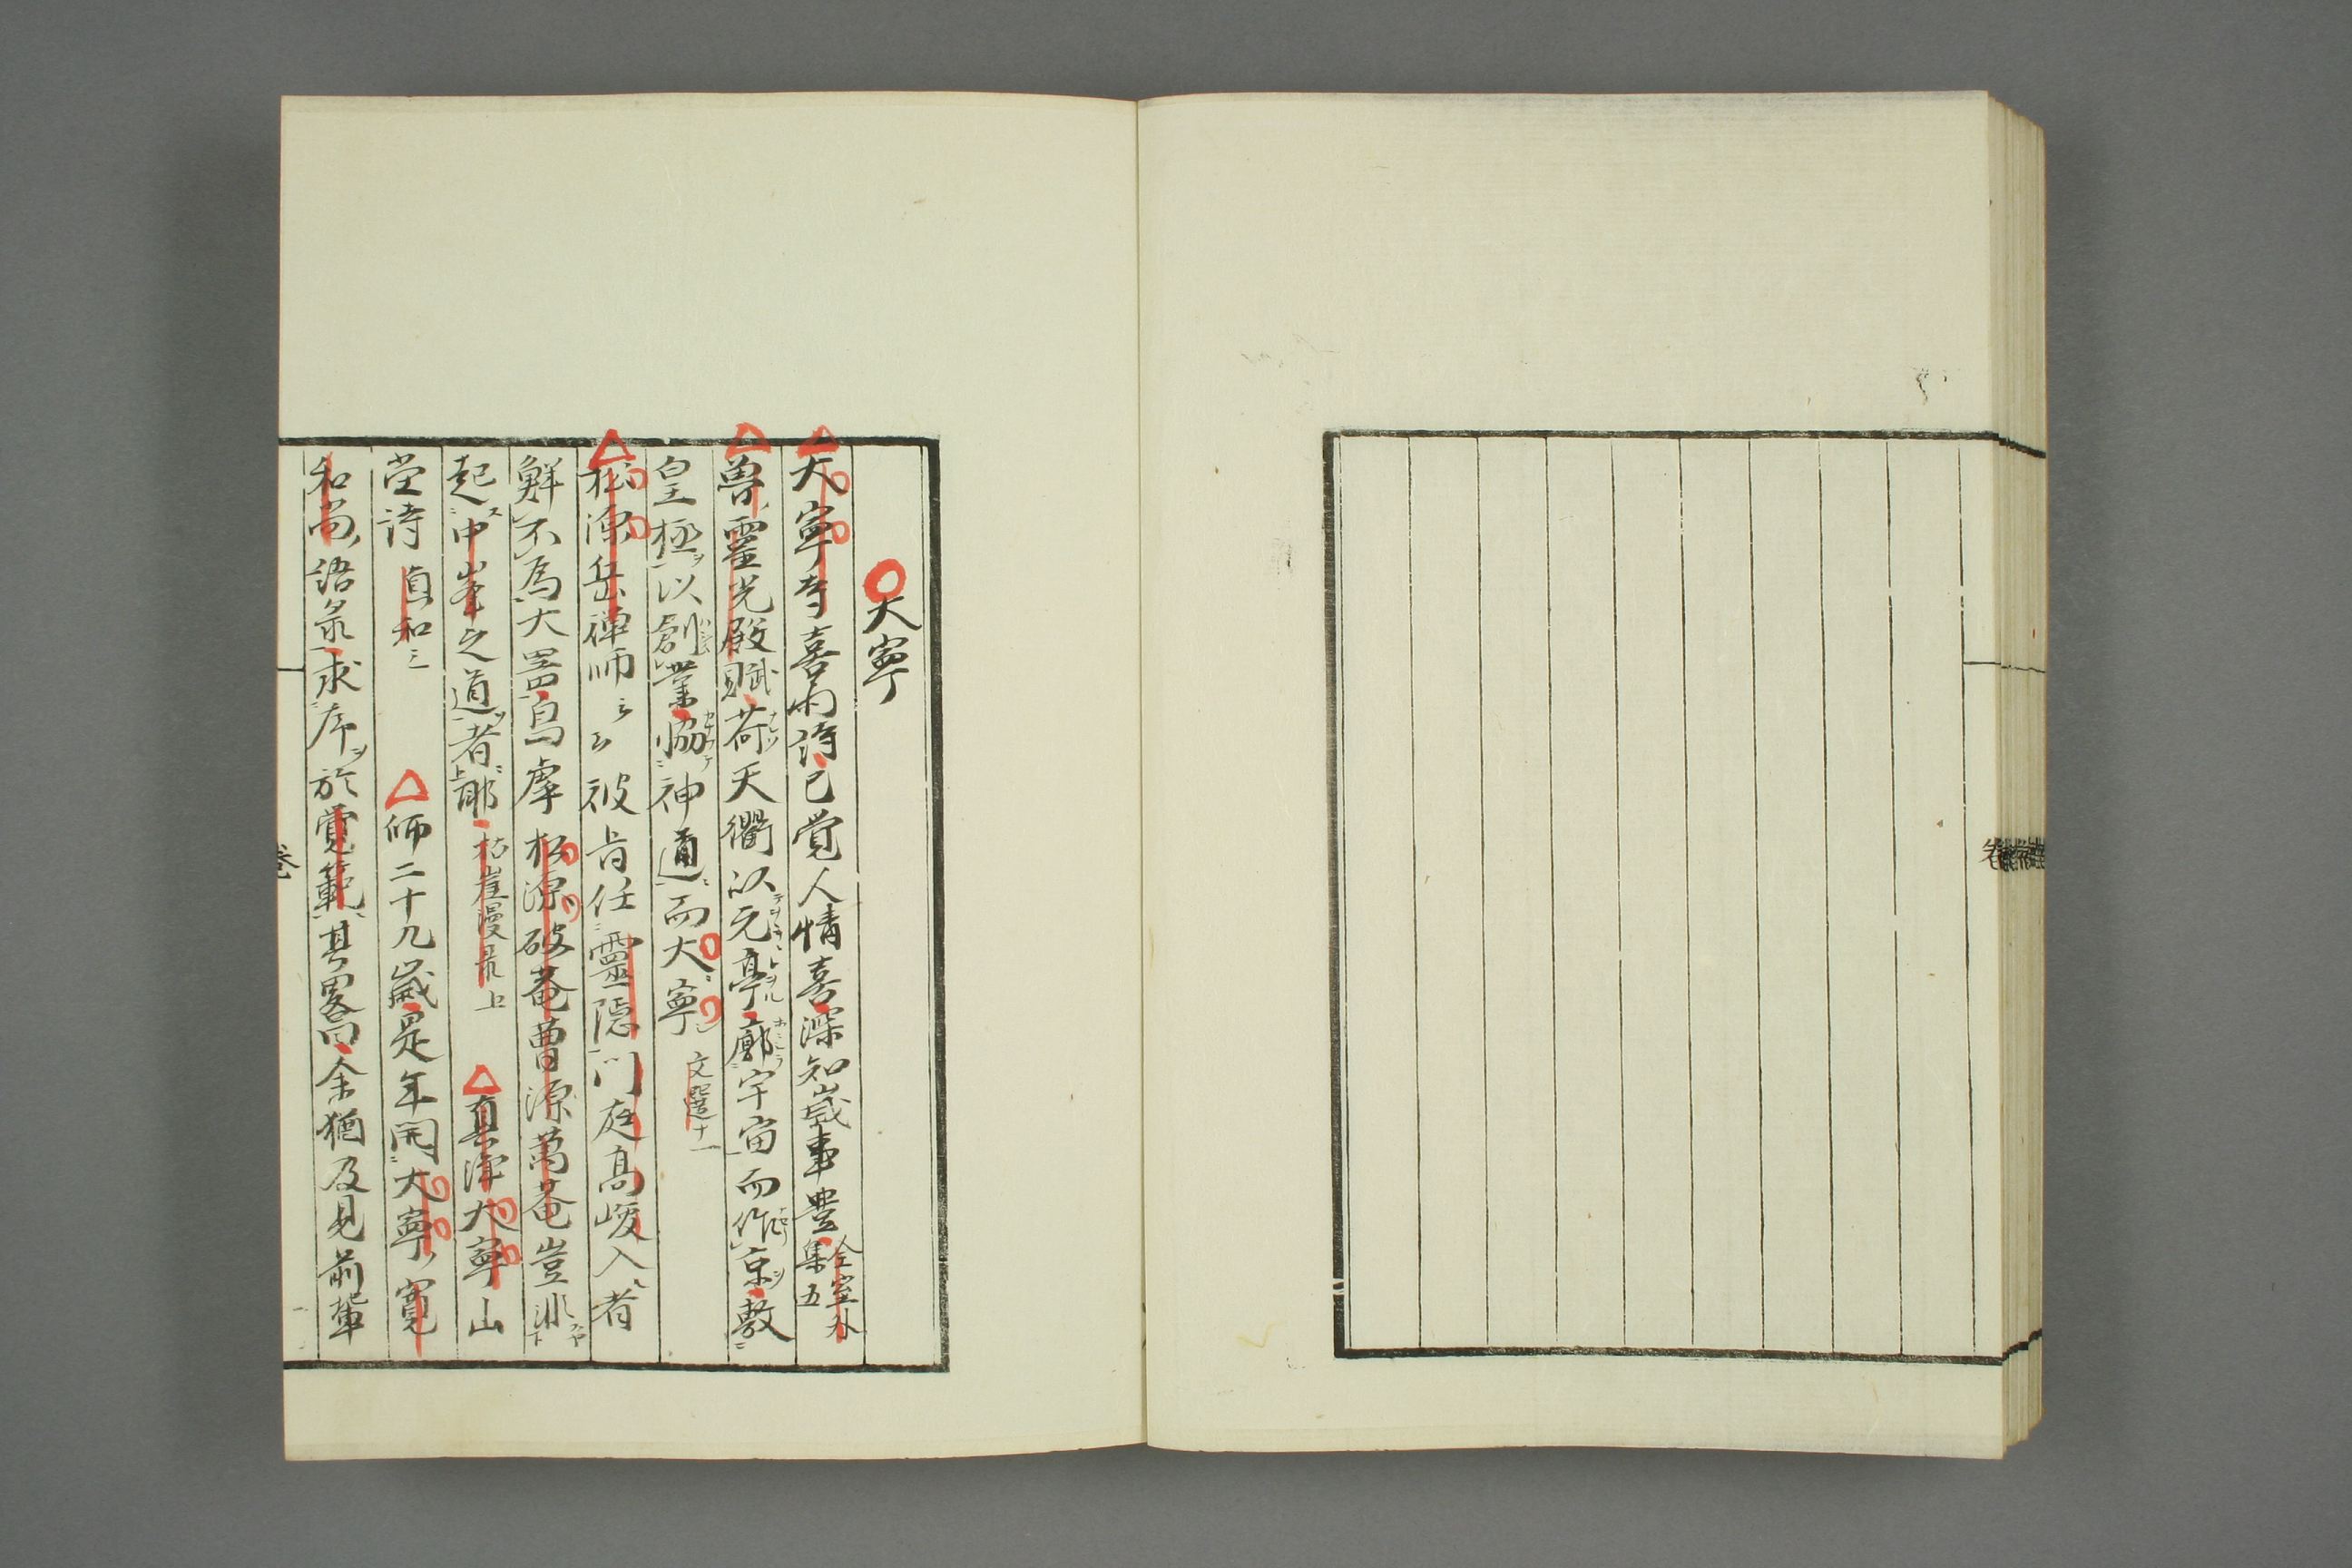 大寧
大寧寺喜雨詩已覚人情喜深知歳事豊全室外集五
魯霊光殿賦荷天衢以元亨廓宇宙而作京敷
皇極以創業協神道而大寧 文選十一
松源岳禅師云云彼肯任霊隠門庭高峻入者
鮮不為大器烏虖松源破菴曹源萬菴豈非
起中峯之道者耶枯崖漫录上 真浄大寧山
堂詩 真和三 師二十九歳是年開大寧寛
和尚語录求序於覚範其畧曰余猶及見前輩
巻